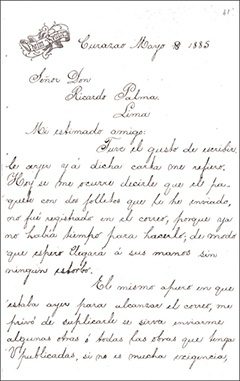 Curazao Mayo 8 1885
Señor Don
Ricardo Palma
Lima
Mi estimado amigo:
Tuve el gusto de escribir
le ayer y á dicha carta me refiero.
Hoy se me ocurre decirle que el pa-
quete con dos folletos que le he enviado,
no fué registrado en el correo, porque ya
no habia tiempo para hacerlo; de modo
que espero llegará á sus manos sin
ningun estorbo.
El mismo apuro en que
estaba ayer para alcanzar el correo, me
privó de suplicarle se sirva enviarme
algunas obras ó todas las obras que tenga
publicadas, si no es mucha exigencia,